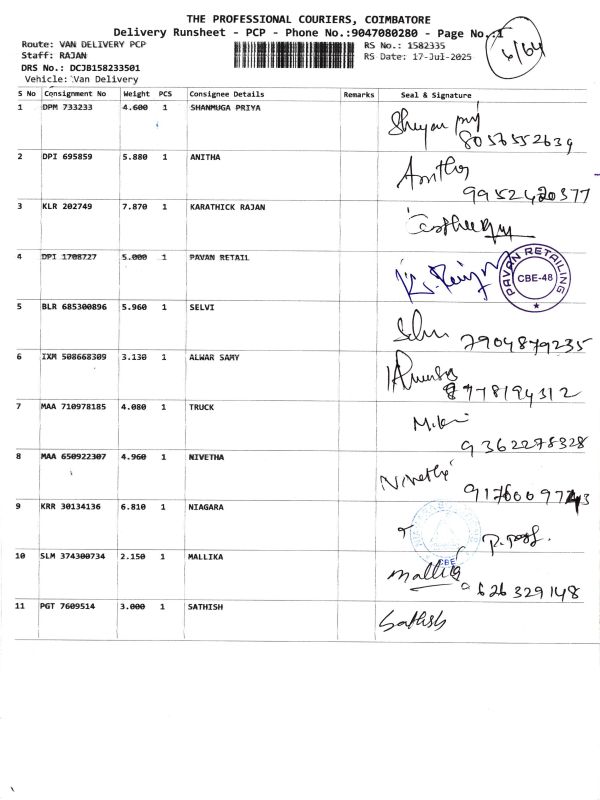 THE PROFESSIONAL COURIERS, COIMBATORE
Delivery Runsheet - PCP - Phone No.:9047080280 - Page No.:1
Route: VAN DELIVERY PCP
RS No.: 1582335
Staff: RAJAN
RS Date: 17-Jul-2025
DRS No.: DCJB158233501
Vehicle: Van Delivery
S No Consignment No Weight PCS Consignee Details Remarks Seal & Signature
1 DPM 733233 4.600 1 SHANMUGA PRIYA
8056552639
2 DPI 695859 5.880 1 ANITHA Anitha
9952420377
3 KLR 202749 7.870 1 KARATHICK RAJAN
4 DPI 1708727 5.000 1 PAVAN RETAIL
PAVAN RETAILING
CBE-48
5 BLR 685300896 5.960 1 SELVI
7904879235
6 IXM 508668309 3.130 1 ALWAR SAMY
8778194312
7 MAA 710978185 4.080 1 TRUCK
9362278328
8 MAA 650922307 4.960 1 NIVETHA Nivetha
9 KRR 30134136 6.810 1 NIAGARA
CBE
10 SLM 374300734 2.150 1 MALLIKA Mallika
9626329148
11 PGT 7609514 3.000 1 SATHISH Sathish